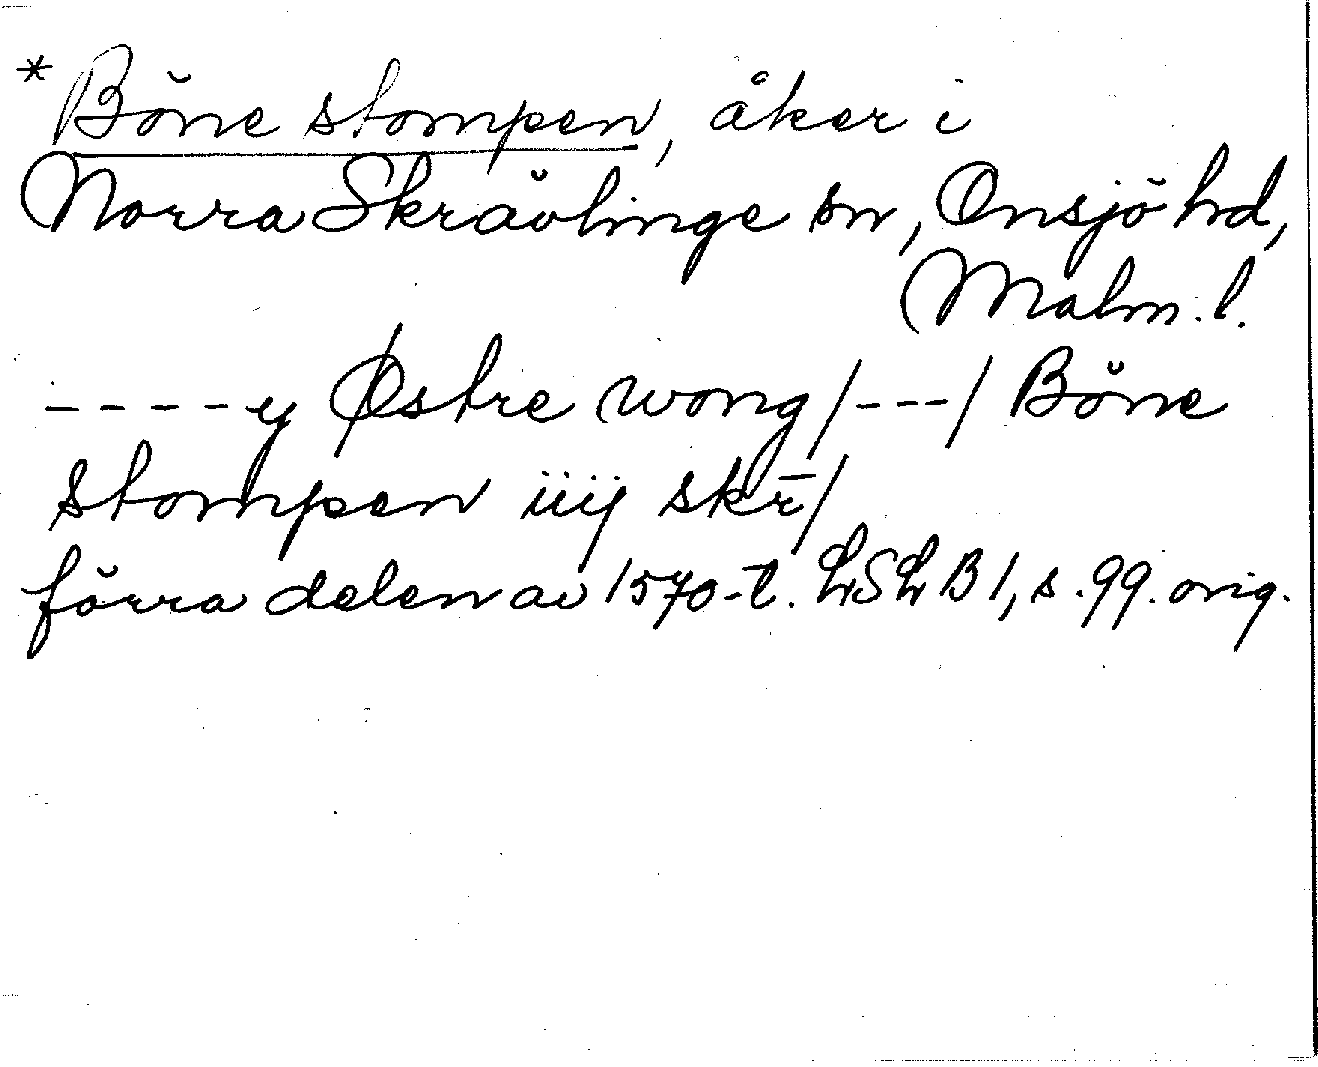 *Böne stompen, åker i
Norra Skrävlinge sn, Onsjö hd,
Malm. l.
----y Østre wong/---/ Böne
stompen iiij skr̄/
förra delen av 1570-t. LSL B1, s. 99. orig.